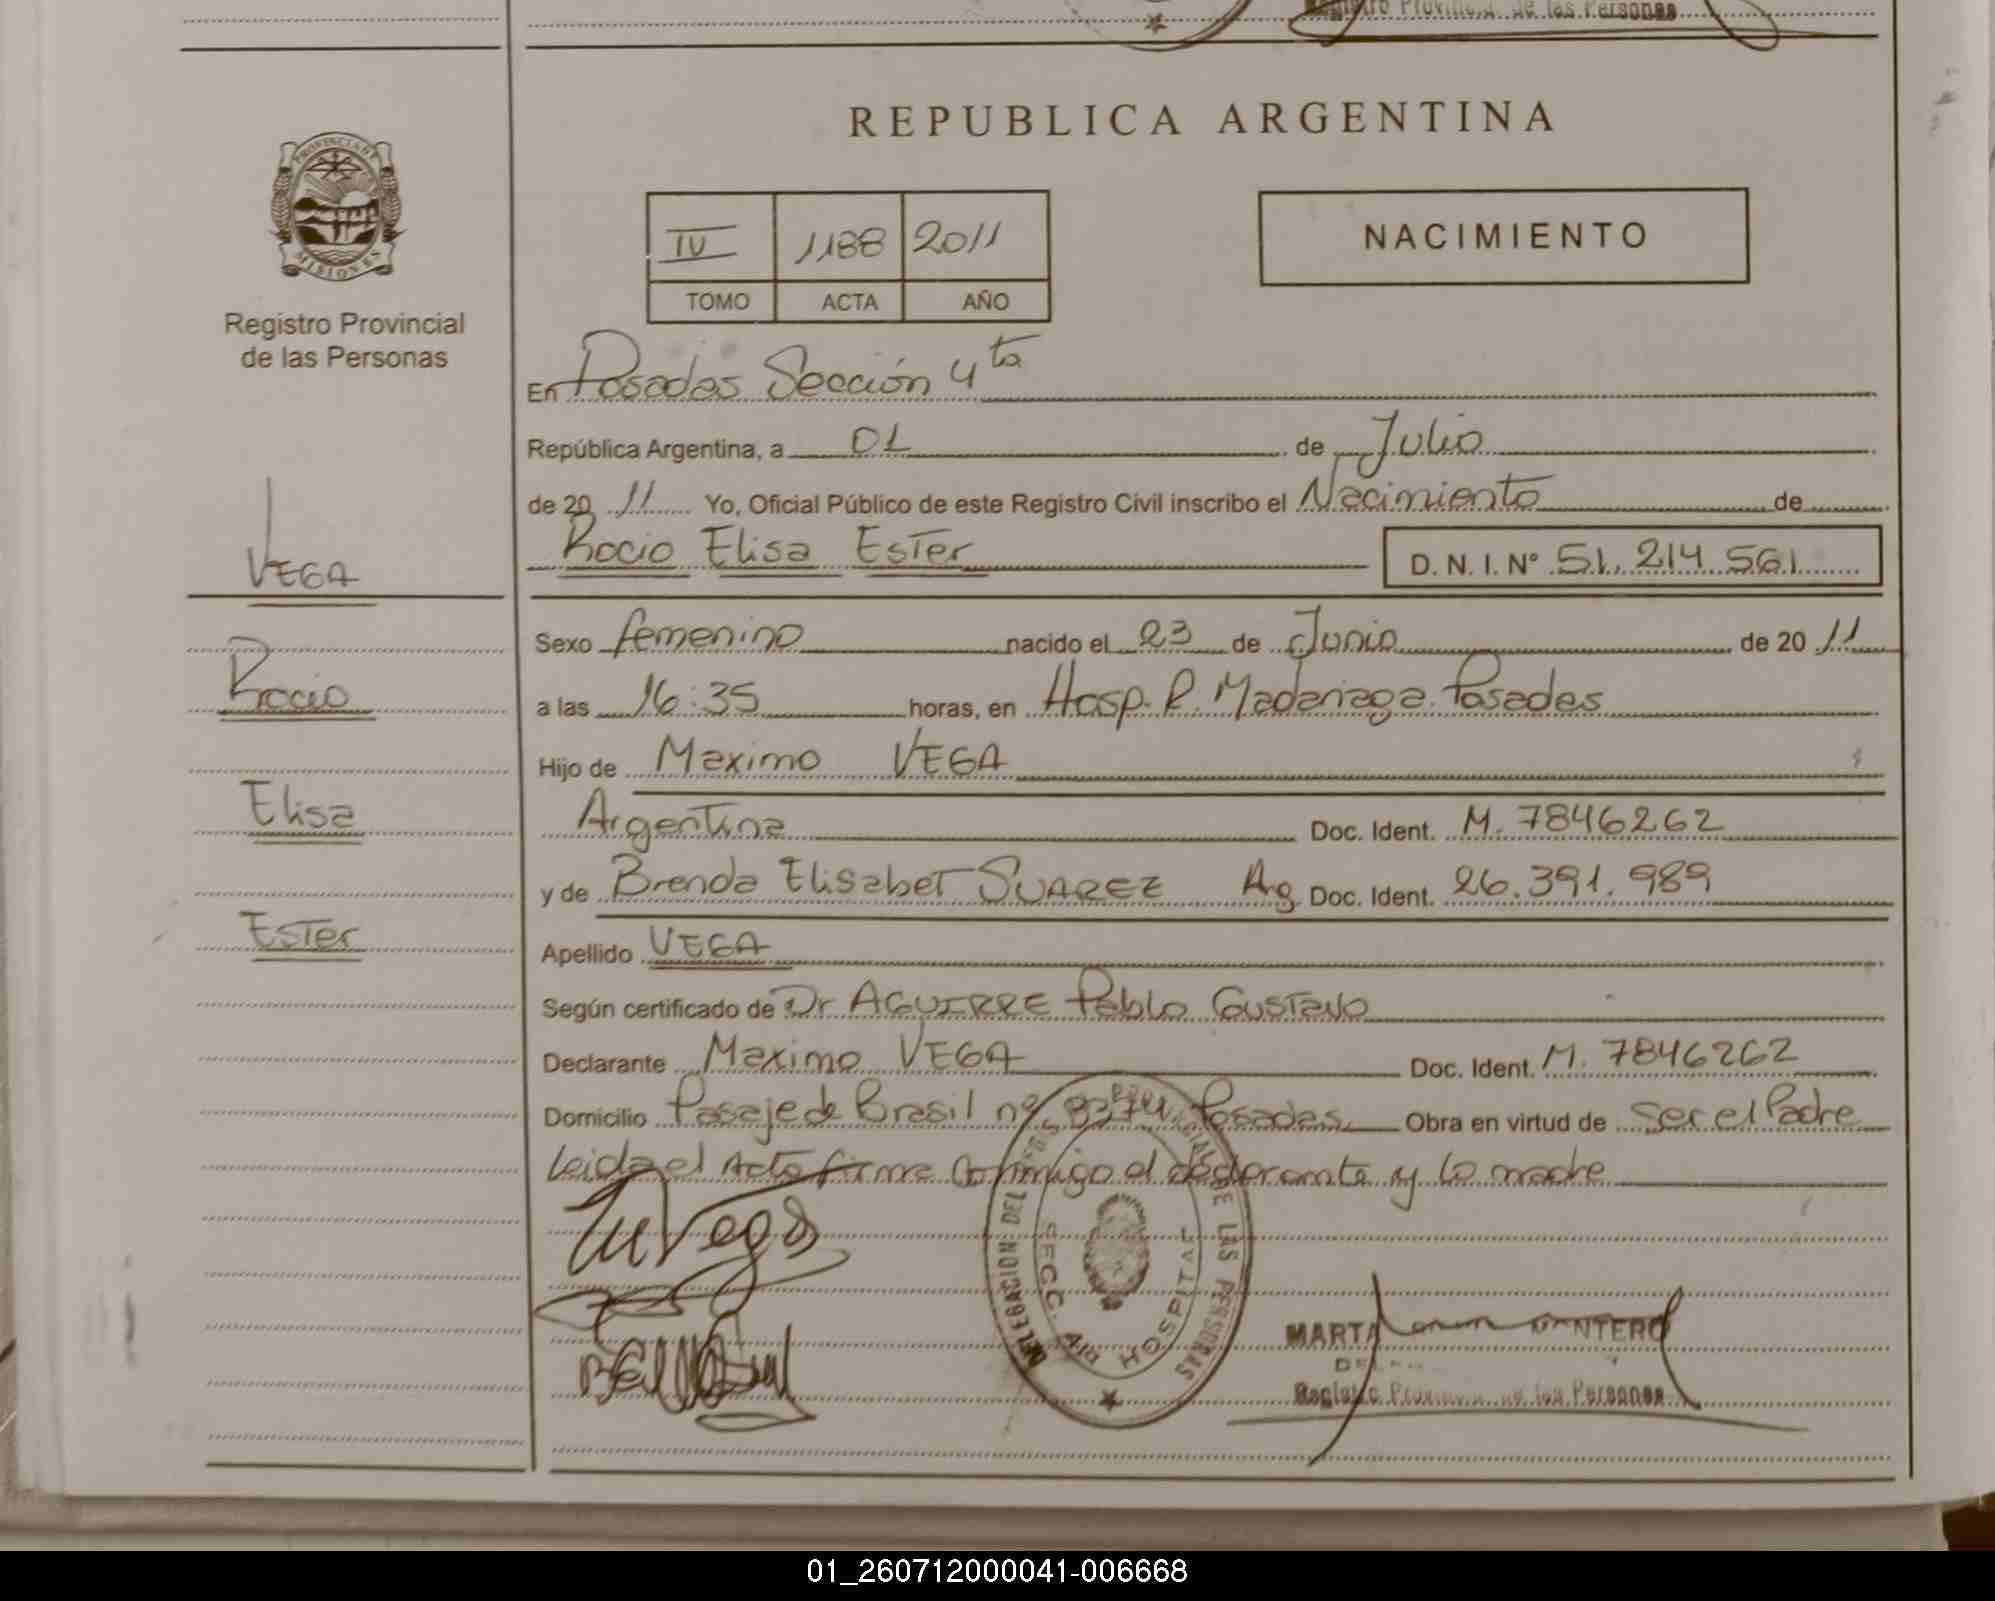 Registro Provincial de las Personas
REPUBLICA ARGENTINA
PROVINCIA DE
MISIONES
Registro Provincial
de las Personas
IV 1188 2011
TOMO ACTA AÑO
NACIMIENTO
En Posadas Sección 4ta
República Argentina, a 01 de Julio
de 20 11 Yo, Oficial Público de este Registro Civil inscribo el Nacimiento de
Rocio Elisa Ester D. N. I. Nº 51.214.561
VEGA
Rocio
Elisa
Ester
Sexo femenino nacido el 23 de Junio de 20 11
a las 16:35 horas, en Hosp. R. Madariaga. Posadas
Hijo de Maximo VEGA
Argentina Doc. Ident. M. 7846262
y de Brenda Elisabet SUAREZ Arg. Doc. Ident. 26.391.989
Apellido VEGA
Según certificado de Dr AGUIRRE Pablo Gustavo
Declarante Maximo VEGA Doc. Ident. M. 7846262
Domicilio Pasaje de Brasil nº Posadas Obra en virtud de Ser el Padre
Leida el Acta firma conmigo el declarante y la madre
DELEGACION DEL DE LAS PERSONAS
HOSPITAL
MARTA MANTERO
Registro Provincial de las Personas
01_260712000041-006668